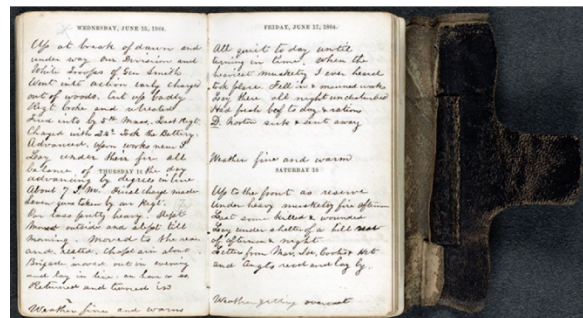 WEDNESDAY, JUNE 15, 1864.
Up at break of dawn and
under way Our Division and
White Troops of Gen Smith
Went into action early charge
out of woods. Cut up badly
Regt broke and retreated
Fired into by 5th Mass. Lost Regt.
Charged with 22d Took the Battery.
Advanced upon works near
Lay under their fire all
balance of the day
THURSDAY 16
advancing by degrees in line
About 7 P.M. Final charge made
Seven guns taken by our Regt.
Our loss pretty heavy. Slept
Moved outside and slept till
morning. Moved to the rear
and rested. Chaplain about.
Brigade moved out in evening
and lay in line. an hour or so
Returned and turned in
Weather fine and warm
FRIDAY, JUNE 17, 1864.
All quiet to day until
evening in time. When the
heaviest musketry I ever heard
took place. Fell in & manned works
Lay there all night undisturbed
Had fresh beef to day & rations
D. Norton sick & sent away
Weather fine and warm
SATURDAY 18
Up to the front as reserve
Under heavy musketry fire afternoon
Lost some killed & wounded
Lay under shelter of a hill rest
of afternoon & night
Letter from
and Anglo read and lay by.
Weather getting overcast